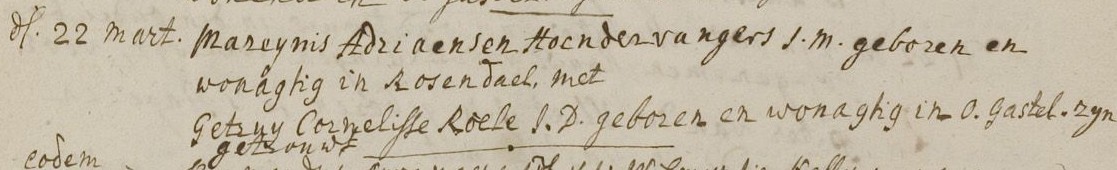 dſ. 22 mart. Mareynis Adriaensen Hoendervangers J. M. geboren en
wonagtig in Rosendael, met
Getruy Cornelisse Roele J. D. geboren en wonagtig in O. Gastel. zyn
getrouwt
eodem